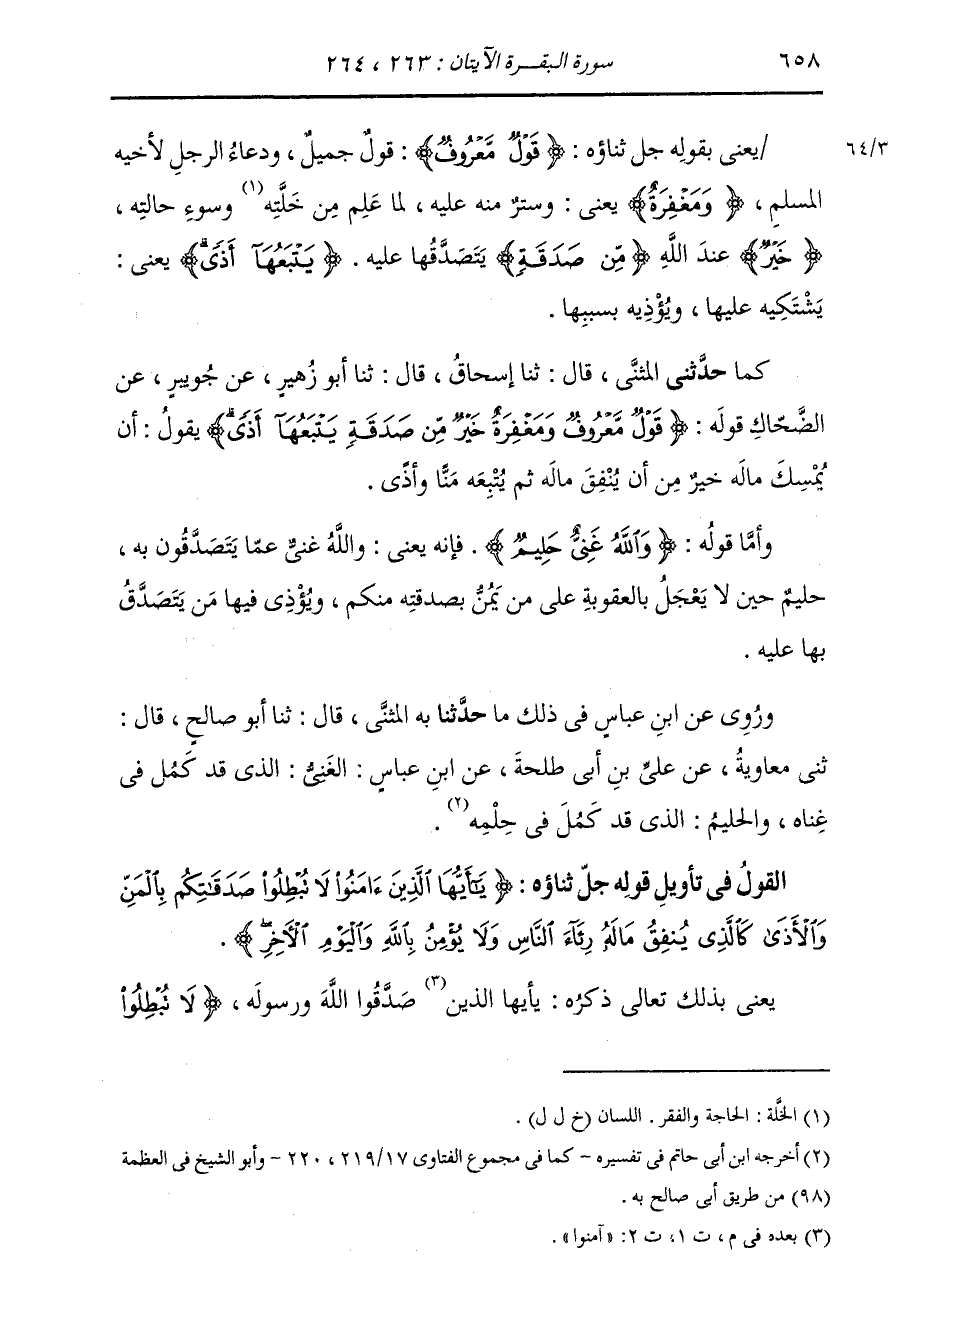 ٦٥٨ سورة البقـــرة الآيتان : ٢٦٣ ، ٢٦٤
٦٤/٣ /يعنى بقولِه جل ثناؤه : ﴿ قَوْلٌ مَّعْرُوفٌ ﴾ : قولٌ جميلٌ ، ودعاءُ الرجلِ لأخيه
المسلمِ ، ﴿ وَمَغْفِرَةٌ ﴾ يعنى : وسترٌ منه عليه ، لما عَلِم مِن خَلَّتِه(١) وسوءِ حالتِه ،
﴿ خَيْرٌ ﴾ عندَ اللَّهِ ﴿ مِّن صَدَقَةٍ ﴾ يَتَصَدَّقُها عليه . ﴿ يَتْبَعُهَآ أَذًىۗ ﴾ يعنى :
يَشْتَكِيه عليها ، ويُؤْذِيه بسببِها .
كما حدَّثنى المثنَّى ، قال : ثنا إسحاقُ ، قال : ثنا أبو زُهيرٍ ، عن جُويبرٍ ، عن
الضَّحّاكِ قولَه : ﴿ قَوْلٌ مَّعْرُوفٌ وَمَغْفِرَةٌ خَيْرٌ مِّن صَدَقَةٍ يَتْبَعُهَآ أَذًىۗ ﴾ يقولُ : أن
يُمْسِكَ مالَه خيرٌ مِن أن يُنْفِقَ مالَه ثم يُتْبِعَه مَنًّا وأذًى .
وأمَّا قولُه : ﴿ وَٱللَّهُ غَنِىٌّ حَلِيمٌ ﴾ . فإنه يعنى : واللَّهُ غنىٌّ عمّا يَتَصَدَّقُون به ،
حليمٌ حين لا يَعْجَلُ بالعقوبةِ على من يَمُنُّ بصدقتِه منكم ، ويُؤْذِى فيها مَن يَتَصَدَّقُ
بها عليه .
ورُوِى عن ابنِ عباسٍ فى ذلك ما حدَّثنا به المثنَّى ، قال : ثنا أبو صالحٍ ، قال :
ثنى معاويةُ ، عن علىِّ بنِ أبى طلحةَ ، عن ابنِ عباسٍ : الغَنِىُّ : الذى قد كَمُل فى
غِناه ، والحليمُ : الذى قد كَمُلَ فى حِلْمِه(٢) .
القولُ فى تأويلِ قولِه جلّ ثناؤه : ﴿ يَٰٓأَيُّهَا ٱلَّذِينَ ءَامَنُوا۟ لَا تُبْطِلُوا۟ صَدَقَٰتِكُم بِٱلْمَنِّ
وَٱلْأَذَىٰ كَٱلَّذِى يُنفِقُ مَالَهُۥ رِئَآءَ ٱلنَّاسِ وَلَا يُؤْمِنُ بِٱللَّهِ وَٱلْيَوْمِ ٱلْأَخِرِۖ ﴾ .
يعنى بذلك تعالى ذكرُه : يأيها الذين(٣) صَدَّقُوا اللَّهَ ورسولَه ، ﴿ لَا تُبْطِلُوا۟
(١) الخَلَّة : الحاجة والفقر . اللسان (خ ل ل) .
(٢) أخرجه ابن أبى حاتم فى تفسيره - كما فى مجموع الفتاوى ٢١٩/١٧ ، ٢٢٠ - وأبو الشيخ فى العظمة
(٩٨) من طريق أبى صالح به .
(٣) بعده فى م ، ت ١، ت ٢: «آمنوا» .